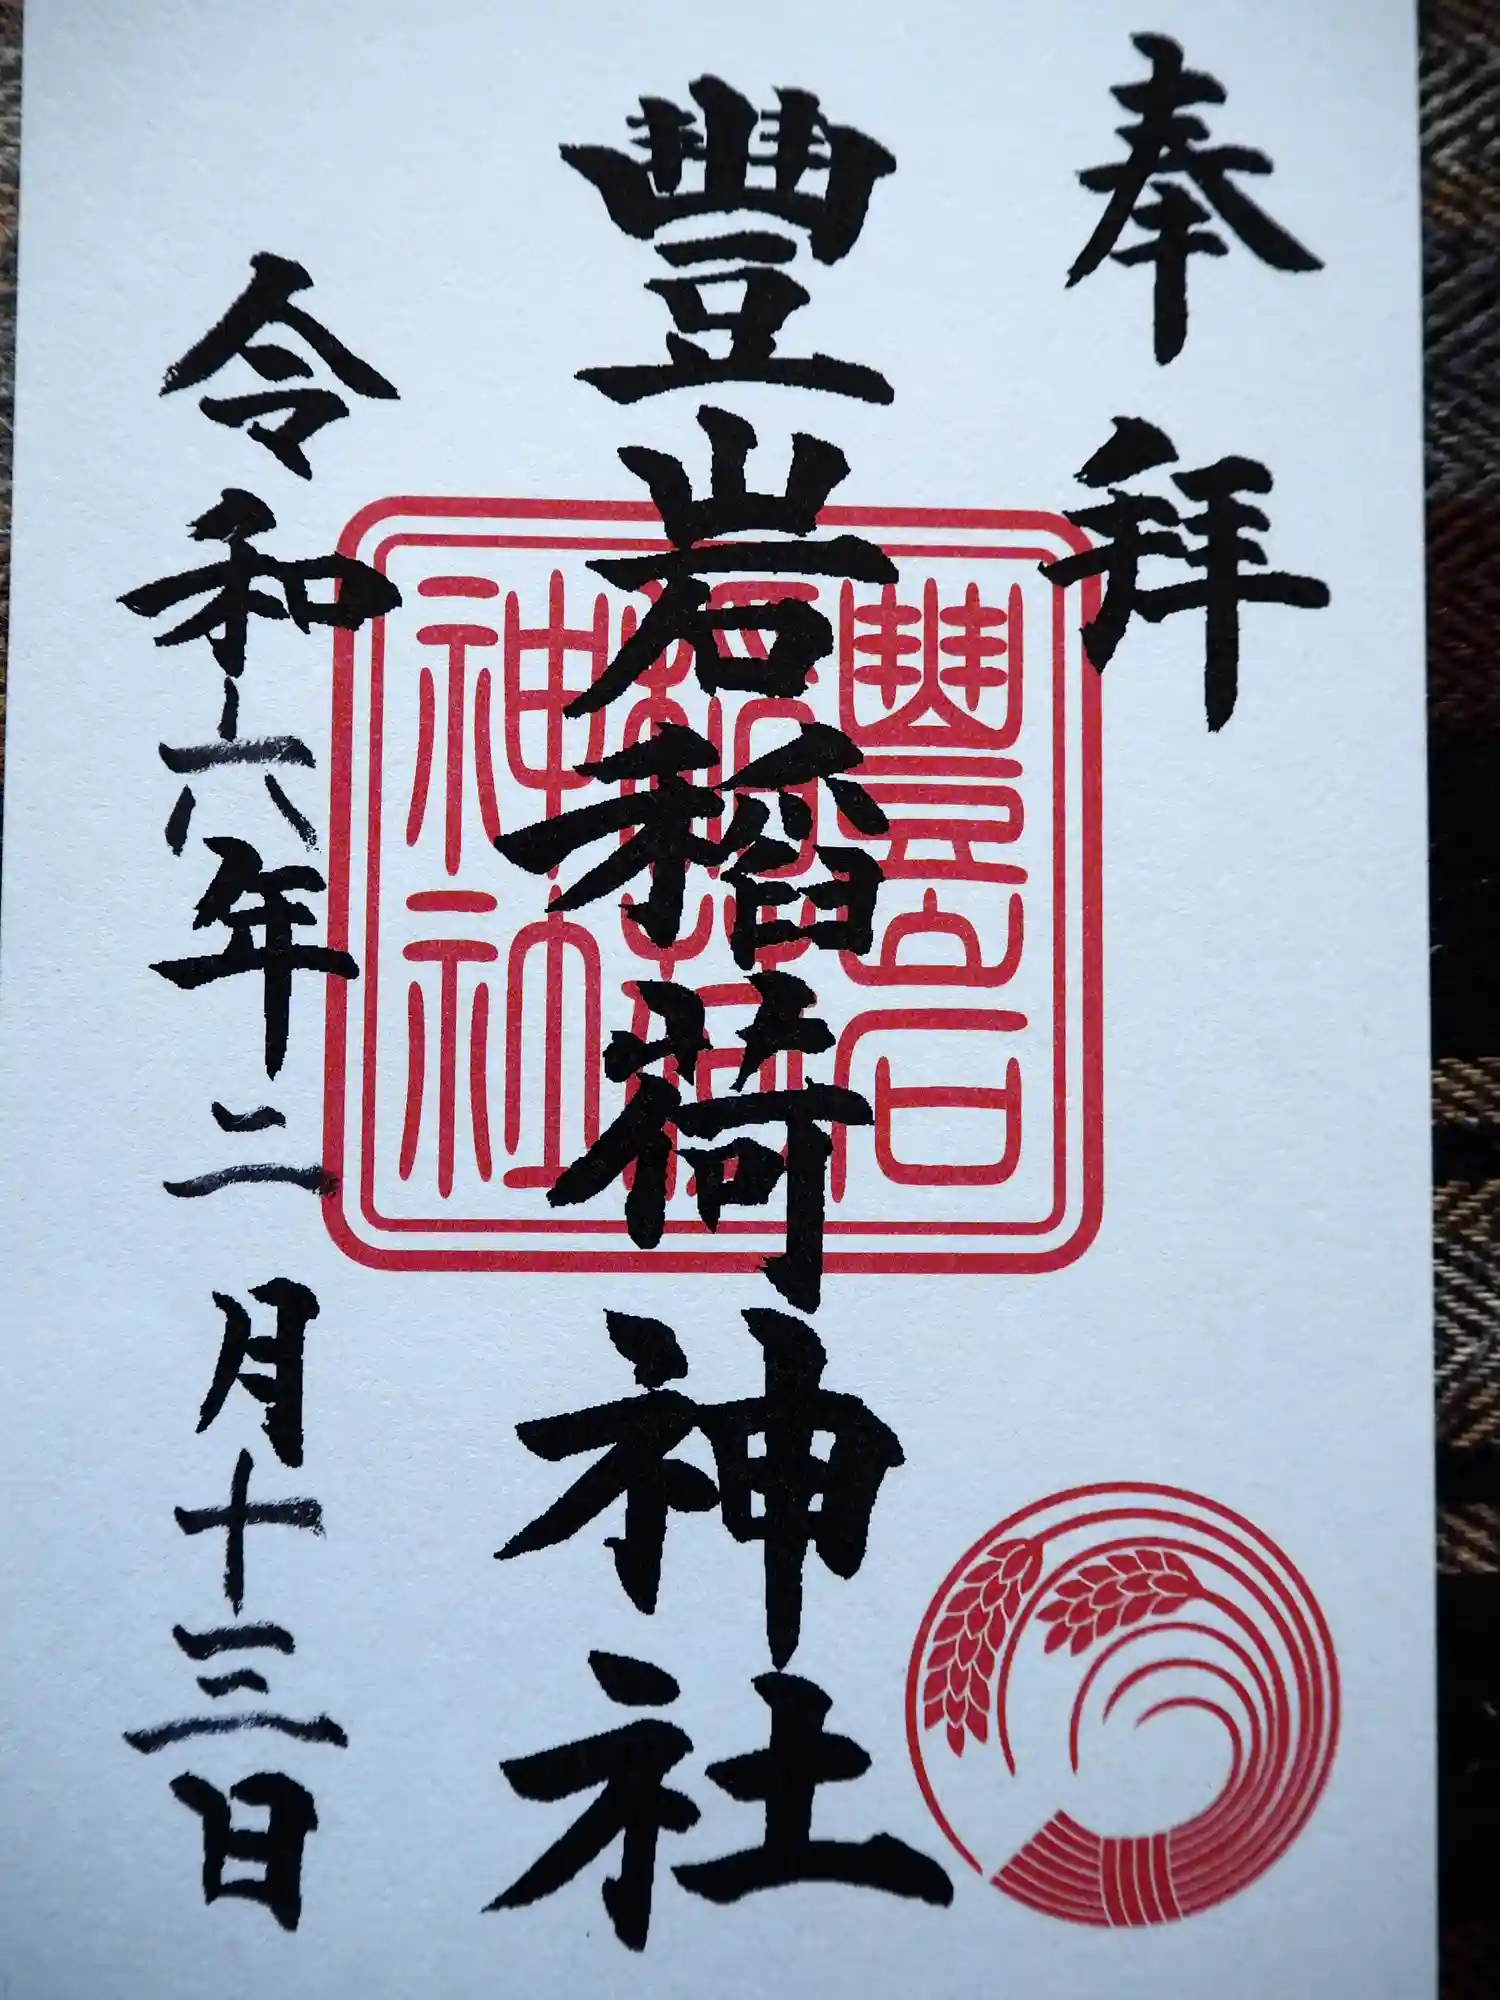 奉拜
豐岩稲荷神社
令和六年二月十三日
豐岩
稲荷
神社